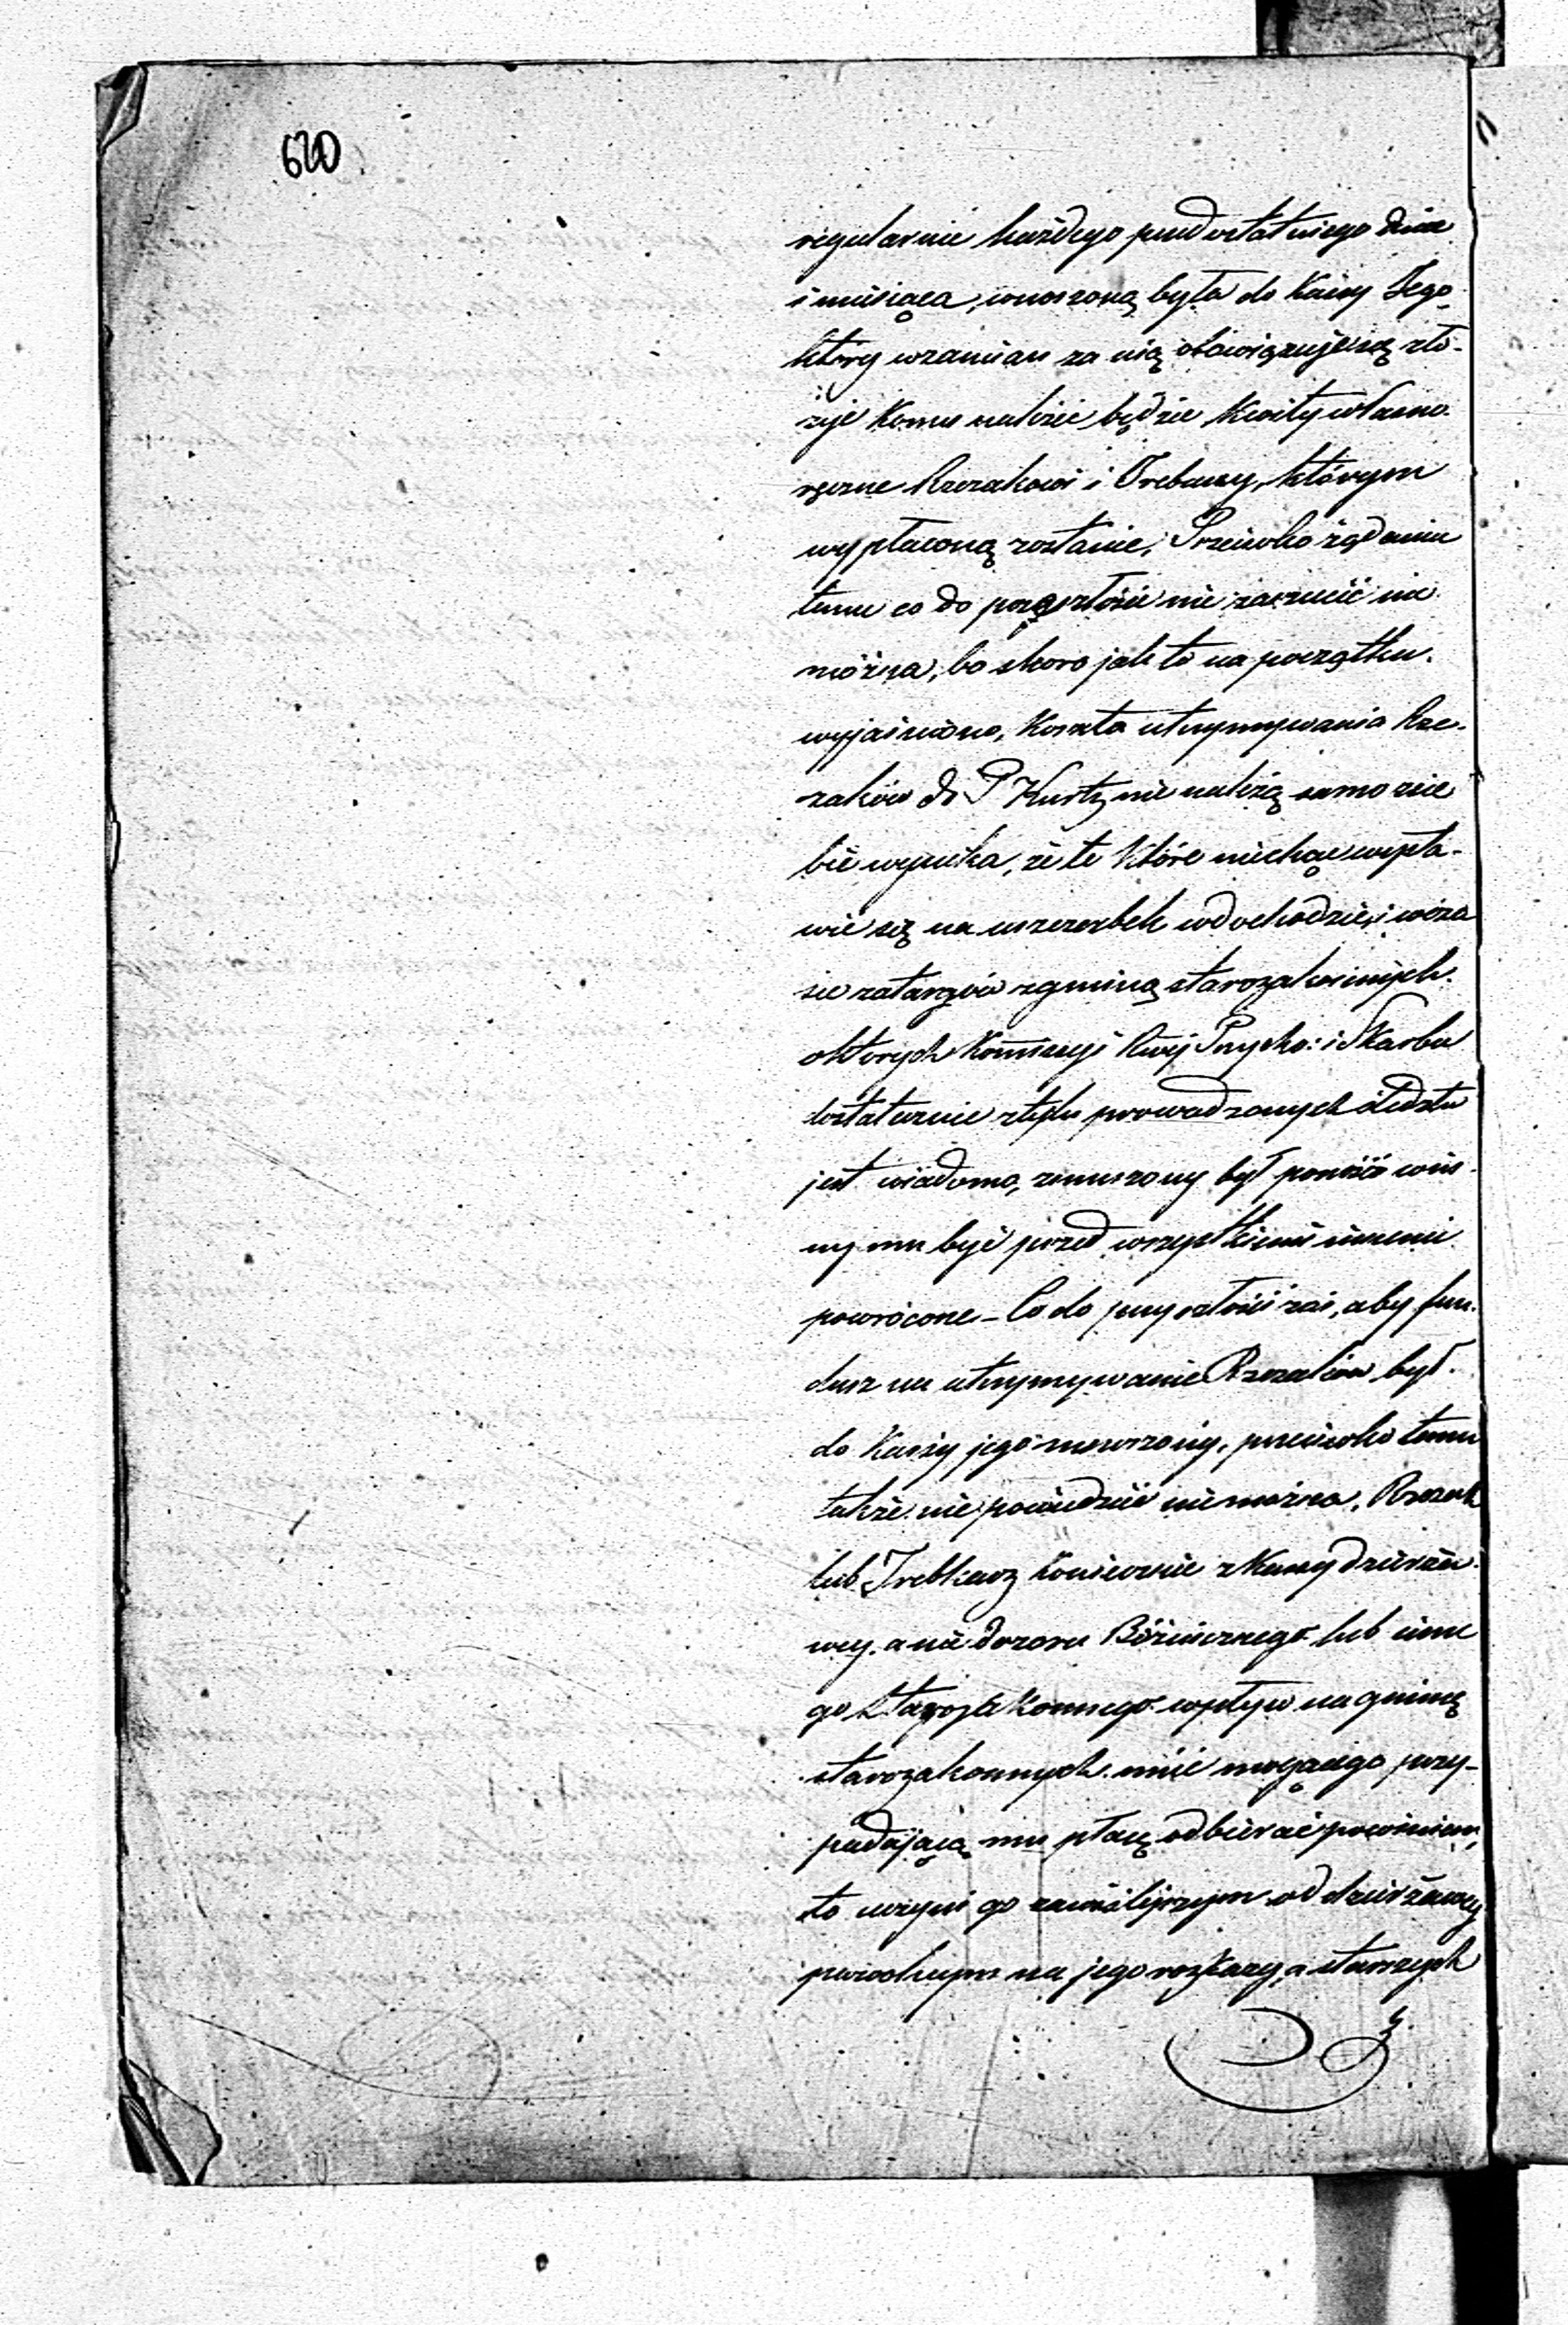 620
regularnie każdego przedostatniego dnia
i miesiąca, wnoszoną była do Kassy Jego,
który wzamian za nią obowiązuje się zło-
żyć komu należeć będzie Kwity własno
ręczne Rzezakowi i Trebarzy, którym
wypłaconą zostanie, Przeciwko żądaniu
temu co do przeszłości nic zarzucić nie
można, bo skoro jak to na początku
wyjaśniono, Koszta utrzymywania Rze-
zaków do P Kurtz nie należą samo z sie
bie wynika, że te które niechcąc wysta-
wić się na uszczerbek w dochodzie, i w cza
sie zatargów z gminą starozakonnych
o których Kommissyi Rwej Przycho: i Skarbu
dostatecznie z tylu prowadzonych śledztw
jest wiadomo, zmuszony był ponosić win-
ny mu być przed wszystkiemi innemi
powrócone – Co do przyszłości zaś, aby fun-
dusz na utrzymywanie Rzezaków był
do Kassy jego wnoszony, przeciwko temu
także nic powiedzieć nie można, Rzezak
lub Trebkarz koniecznie z Kassy dzierżaw
cy, a nie dozoru Bóżniczego lub inne
go Starozakonnego wpływ na gminę
starozakonnych mieć mogącego przy-
padającą mu płacę odbierać powinien,
to uczyni go zawiślejszym od dzierżawcy
powolnym na jego rozkazy, a starszych